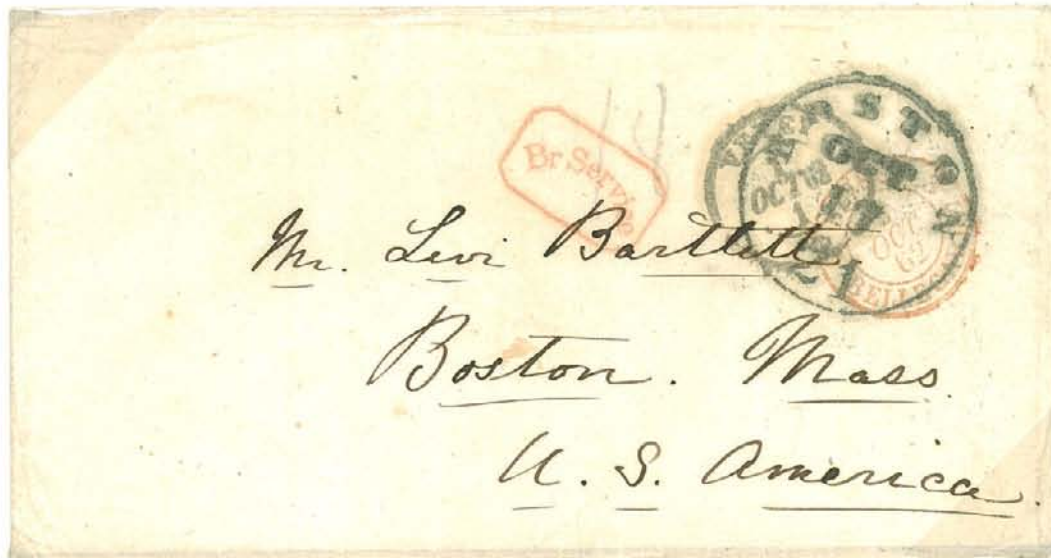 Br Service
OCT
17
21
OCT
62
Mr. Levi Bartlett,
Boston. Mass
U. S. America.